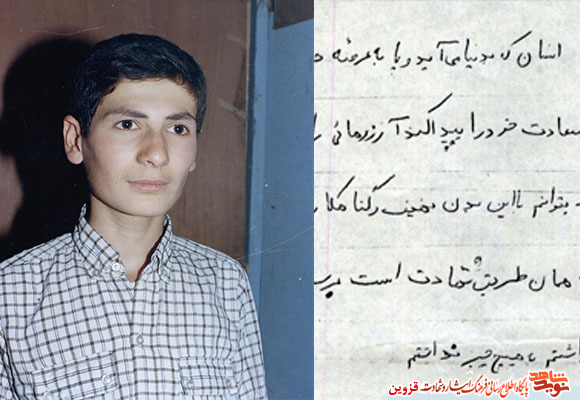 انسان که بدنیا می آید و با به عرصه
سعادت خود را پیدا کند آرزوهائی را
بتوانم با این بدن ضعیف و گناهکار
همان طریق شهادت است
داشتم به هیچ چیز نداشتم
نوید شاهد
پایگاه اطلاع رسانی فرهنگ ایثار و شهادت قزوین